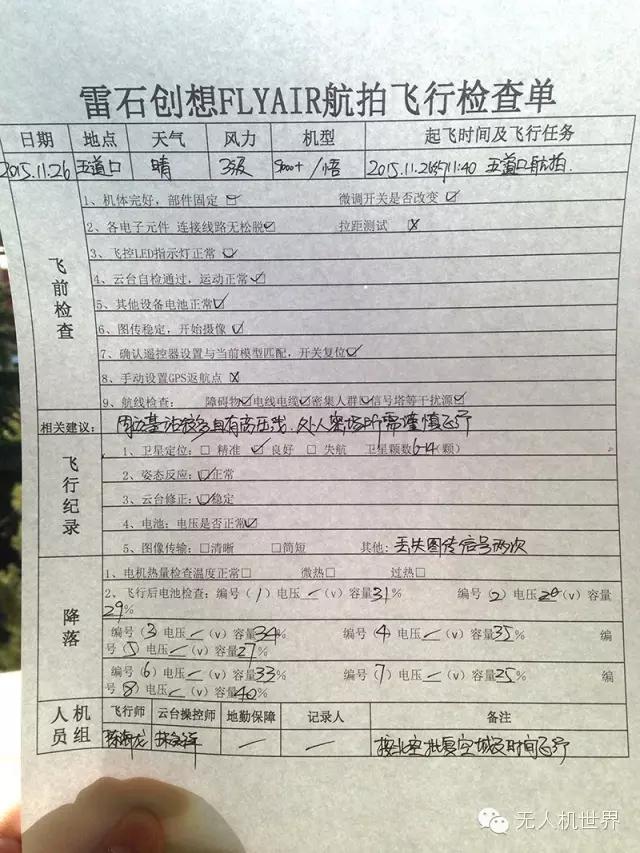 雷石创想FLYAIR航拍飞行检查单
日期 地点 天气 风力 机型 起飞时间及飞行任务
2015.11.26 五道口 晴 3级 S900+/悟 2015.11.26 11:40 五道口航拍.
飞前检查
1、机体完好，部件固定☑ 微调开关是否改变☑
2、各电子元件 连接线路无松脱☑ 拉距测试☒
3、飞控LED指示灯正常☑
4、云台自检通过，运动正常☑
5、其他设备电池正常☑
6、图传稳定，开始摄像☑
7、确认遥控器设置与当前模型匹配，开关复位☑
8、手动设置GPS返航点☒
9、航线检查： 障碍物☑电线电缆☑密集人群☑信号塔等干扰源☑
相关建议：周边基站较多且有高压线.处人密场所需谨慎飞行
飞行纪录
1、卫星定位：□ 精准 ☑ 良好 □ 失航 卫星颗数6-14(颗)
2、姿态反应：☑正常
3、云台修正：☑稳定
4、电池：电压是否正常☑
5、图像传输：□清晰 □简短 其他：丢失图传信号两次
降落
1、电机热量检查温度正常□ 微热□ 过热□
2、飞行后电池检查：编号（1）电压 —（v）容量31% 编号（2）电压（v）容量
29%
编号（3 电压 —（v）容量34% 编号（4 电压 —（v）容量35% 编
号（5 电压 —（v）容量27%
编号（6）电压 —（v）容量33% 编号（7）电压 —（v）容量25% 编
号（8）电压 —（v）容量40%
人员机组
飞行师 云台操控师 地勤保障 记录人 备注
— — 按北空批复空域及时间飞行
无人机世界